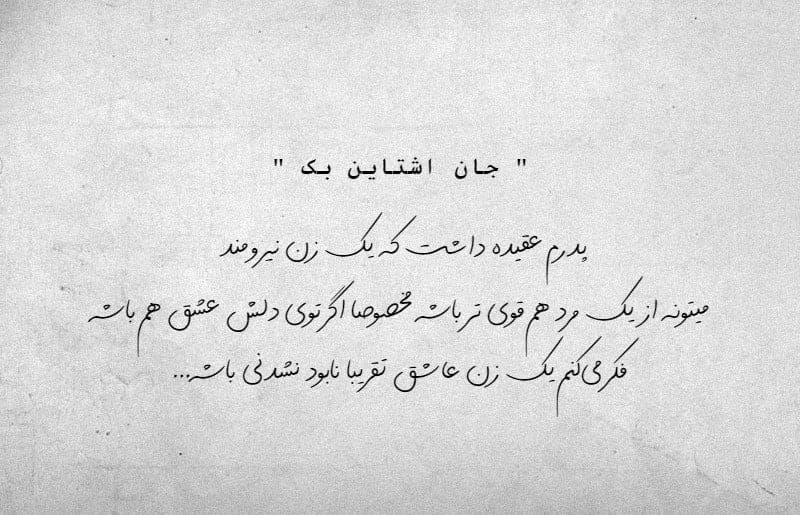 " جان اشتاین بک "
پدرم عقیده داشت که یک زن نیرومند
میتونه از یک مرد هم قوی تر باشه مخصوصا اگر توی دلش عشق هم باشه
فکر می‌کنم یک زن عاشق تقریبا نابود نشدنی باشه...